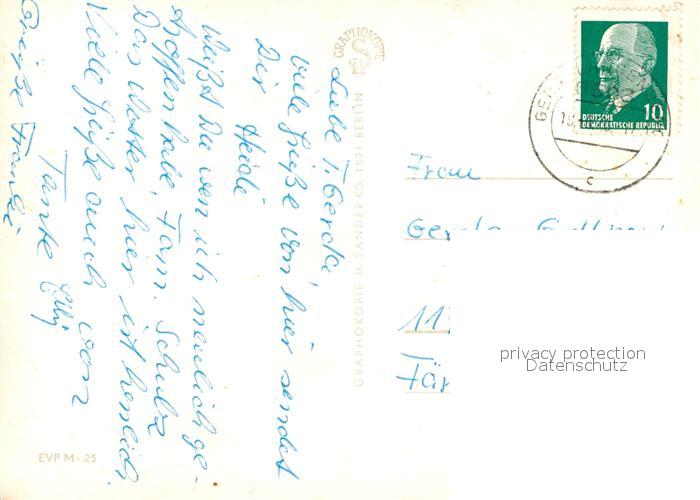 Liebe T. Gerda
viele Grüße von hier sendet
Dir Heidi
Weißt Du wen ich neulich ge-
troffen habe, Fam. Schulz
Das Wetter hier ist herrlich.
Viele Grüße auch von
Tante Elly
Grüße Frank
GRAPHOKOPIE
GRAPHOKOPIE H. SANDER KG. 1071 BERLIN
EVP M -,25
DEUTSCHE
DEMOKRATISCHE REPUBLIK
10
c
Frau
Gerda
11
privacy protection
Datenschutz